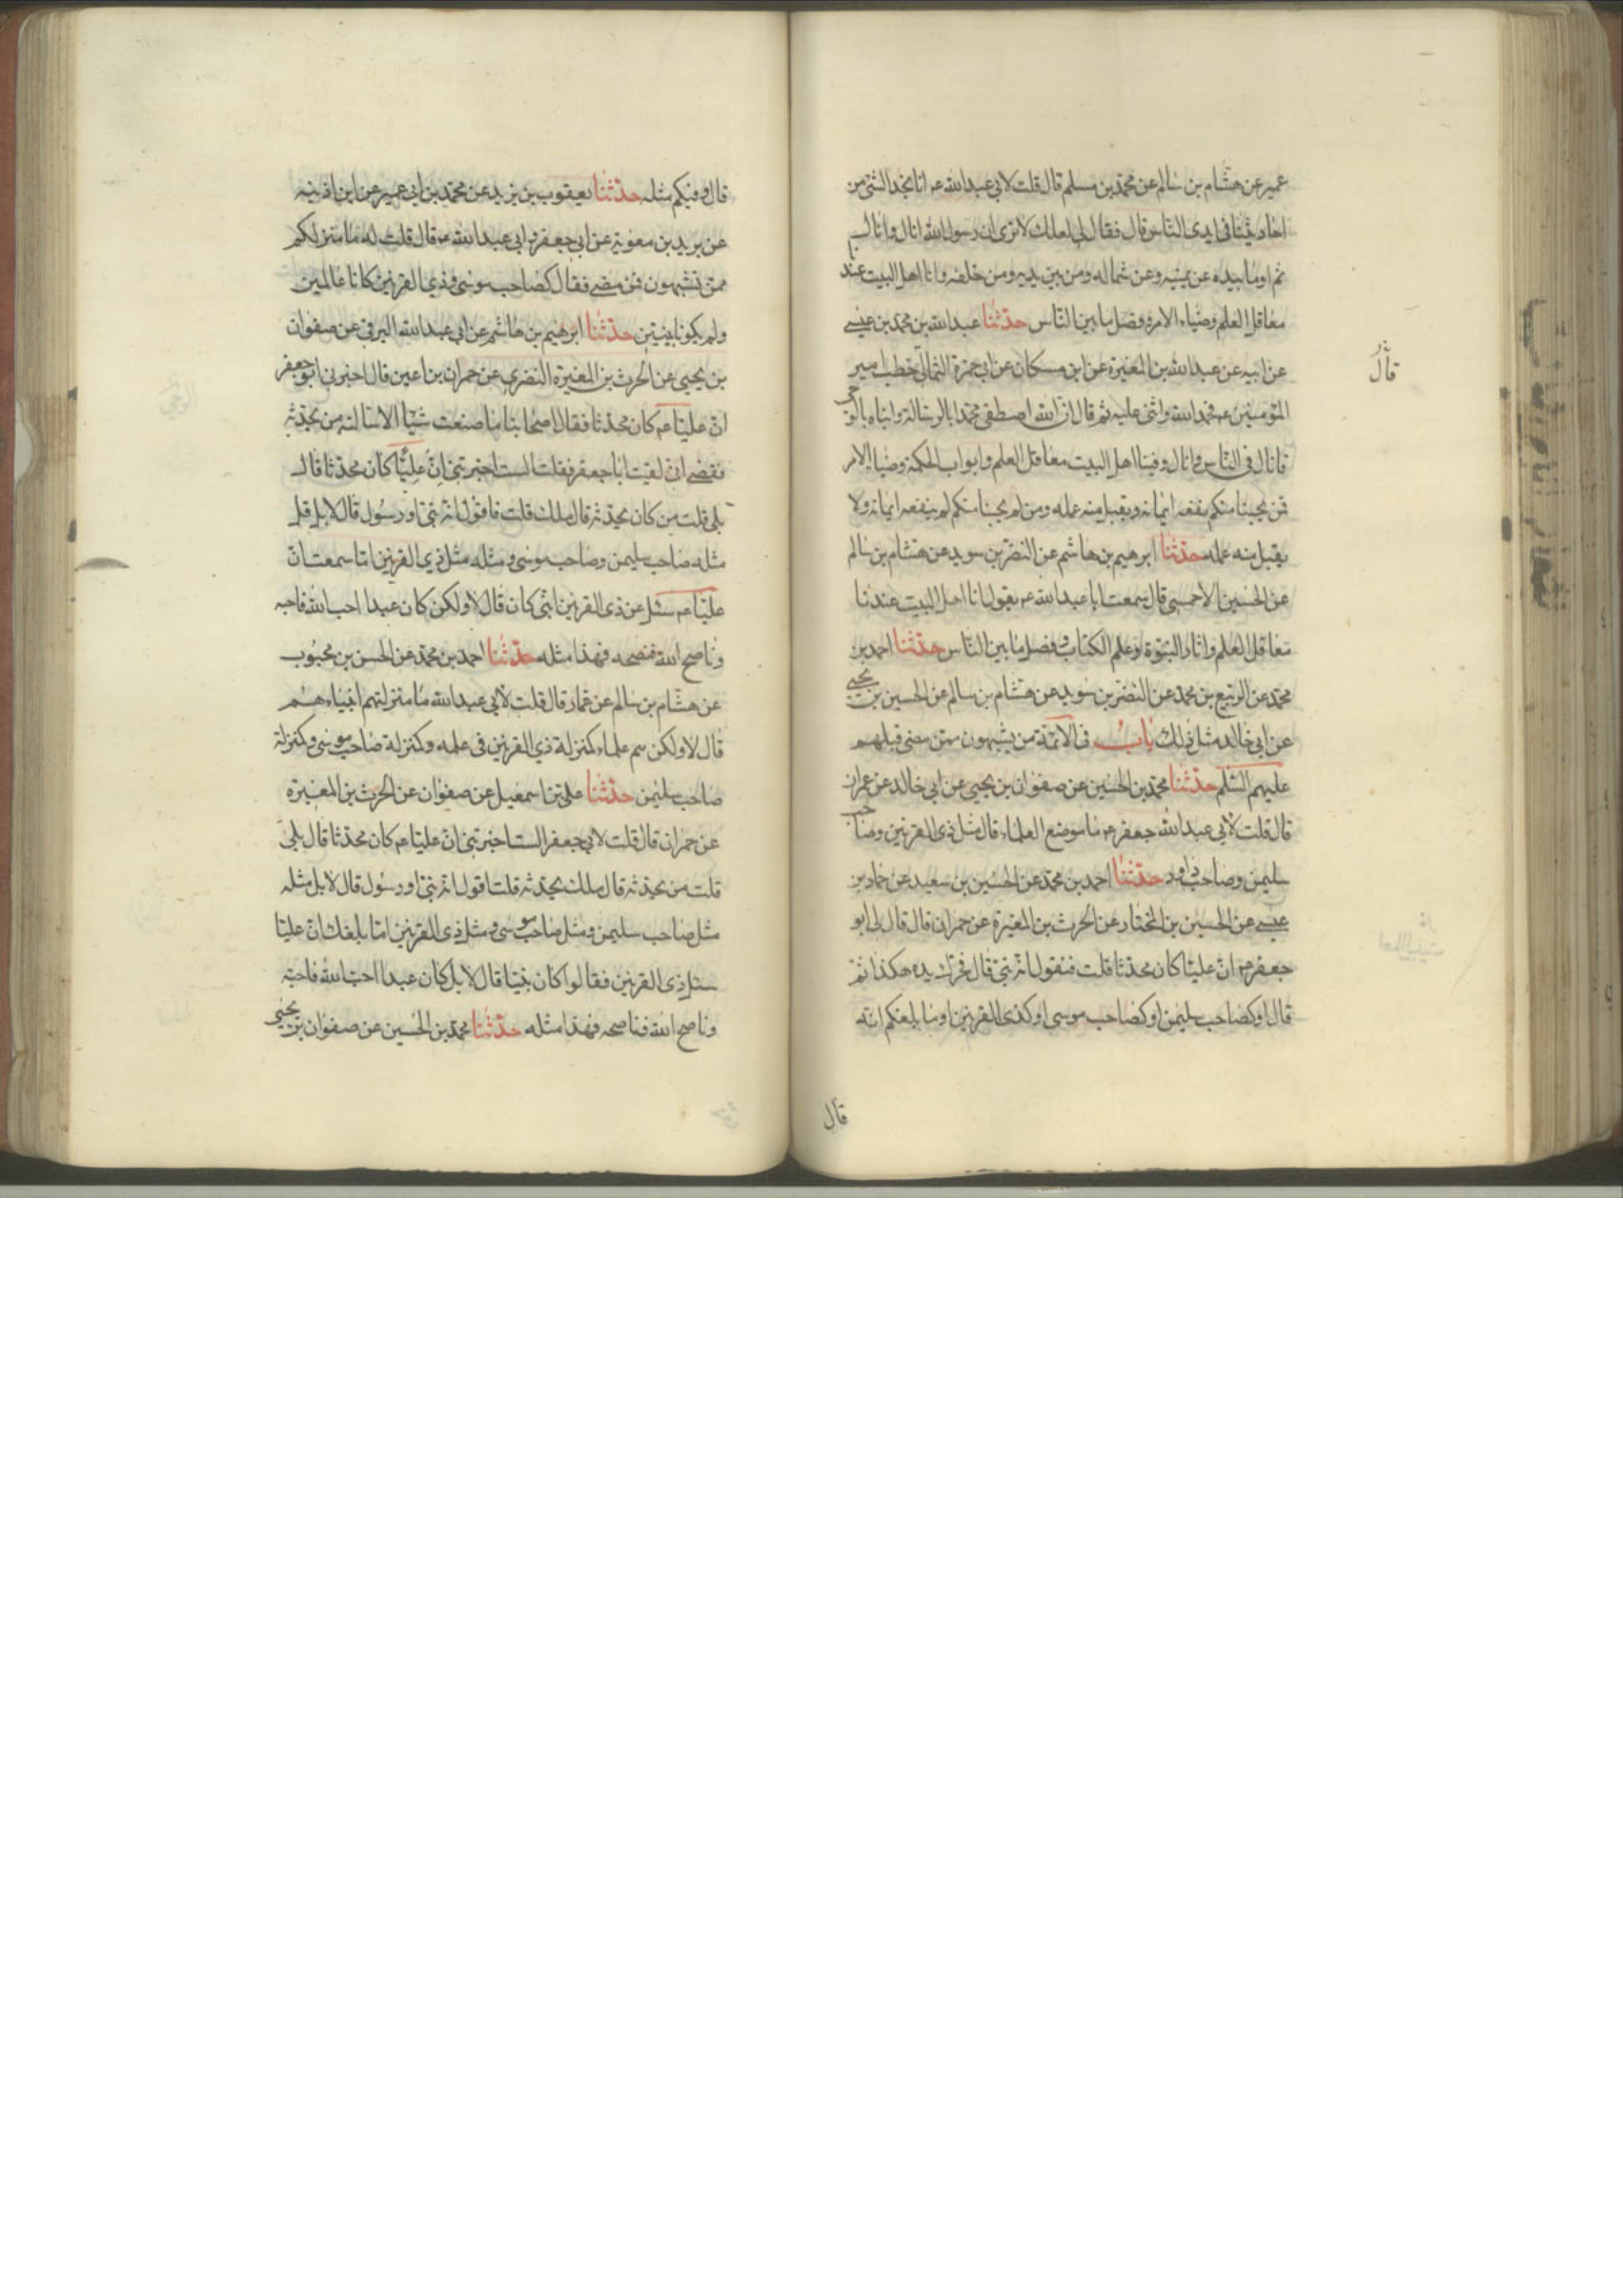 عمير عن هشام بن سالم عن محمد بن مسلم قال قلت لابي عبد الله عم انا نجد الشئ من
احاديثنا في ايدى الناس قال فقال لي لعلك لا ترى ان رسول الله انال وانال
ثم اومأ بيده عن يمينه وعن شماله ومن بين يديه ومن خلفه وانا اهل البيت عندنا
معاقل العلم وضياء الامر وفصل ما بين الناس حدثنا عبد الله بن محمد بن عيسى
عن ابيه عن عبد الله بن المغيرة عن ابن مسكان عن ابي حمزة الثمالي خطب امير
المؤمنين عم فحمد الله واثنى عليه ثم قال ان الله اصطفى محمدا بالرسالة وانباه بالوحى
قال
فانال في الناس وانال وفينا اهل البيت معاقل العلم وابواب الحكمة وضياء الامر
فمن يحبنا منكم نفعه ايمانه ويقبل منه عمله ومن لم يحبنا منكم لم ينفعه ايمانه ولا
يقبل منه عمله حدثنا ابرهيم بن هاشم عن النضر بن سويد عن هشام بن سالم
عن الحسين الاحمسي قال سمعت ابا عبد الله عم يقول انا اهل البيت عندنا
معاقل العلم واثار النبوة وعلم الكتاب وفصل ما بين الناس حدثنا احمد بن
محمد عن الربيع بن محمد عن النضر بن سويد عن هشام بن سالم عن الحسين بن يحيى
عن ابي خالد مثل ذلك باب في الائمة من يشبهون ممن مضى قبلهم
عليهم السلم حدثنا محمد بن الحسين عن صفوان بن يحيى عن ابي خالد عن عمران
قال قلت لابي عبد الله جعفر عم ما موضع العلماء قال مثل ذى القرنين وصاحب
سليمن وصاحب داود حدثنا احمد بن محمد عن الحسين بن سعيد عن حماد بن
عيسى عن الحسين بن المختار عن الحرث بن المغيرة عن حمران قال قال لى ابو
جعفر عم ان عليا كان محدثا قلت فنقول انه نبي قال فحرك يده هكذا ثم
قال او كصاحب سليمن او كصاحب موسى او كذى القرنين او ما بلغكم انه
قال
قال وفيكم مثله حدثنا يعقوب بن يزيد عن محمد بن ابي عمير عن ابن اذينه
عن بريد بن معوية عن ابي جعفر وابي عبد الله عم قال قلت له ما منزلكم
ممن تشبهون فمن مضى فقال كصاحب موسى وذي القرنين كانا عالمين
ولم يكونا نبيين حدثنا ابرهيم بن هاشم عن ابي عبد الله البرقي عن صفوان
بن يحيى عن الحرث بن المغيرة النضري عن حمران بن اعين قال اخبرني ابو جعفر
ان عليا عم كان محدثا فقال اصحابنا ما صنعت شيئا الا سالته من يحدثه
فقضى اني لقيت ابا جعفر فقلت الست اخبرتني ان عليا كان محدثا قال
بلى قلت من كان يحدثه قال ملك قلت فاقول انه نبي او رسول قال لا بل قل
مثله صاحب سليمن وصاحب موسى ومثله مثل ذي القرنين اما سمعت ان
عليا عم سئل عن ذي القرنين انبي كان قال لا ولكن كان عبدا احب الله فاحبه
وناصح الله فنصحه فهذا مثله حدثنا احمد بن محمد عن الحسن بن محبوب
عن هشام بن سالم عن عمار قال قلت لابي عبد الله ما منزلتهم انبياء هم
قال لا ولكن هم علماء كمنزلة ذي القرنين في علمه وكمنزلة صاحب موسى وكمنزلة
صاحب سليمن حدثنا علي بن اسمعيل عن صفوان عن الحرث بن المغيرة
عن حمران قال قلت لابي جعفر الست اخبرتني ان عليا عم كان محدثا قال بلى
قلت من يحدثه قال ملك يحدثه قلت اقول انه نبي او رسول قال لا بل مثله
مثل صاحب سليمن ومثل صاحب موسى ومثل ذي القرنين اما بلغك ان عليا
سئل ذي القرنين فقالوا كان نبيا قال لا بل كان عبدا احب الله فاحبه
وناصح الله فناصحه فهذا مثله حدثنا محمد بن الحسين عن صفوان بن يحيى